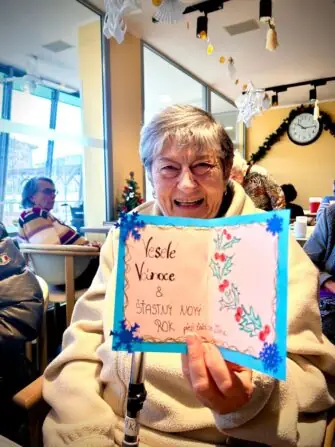 Veselé
Vánoce
&
ŠŤASTNÝ NOVÝ
ROK